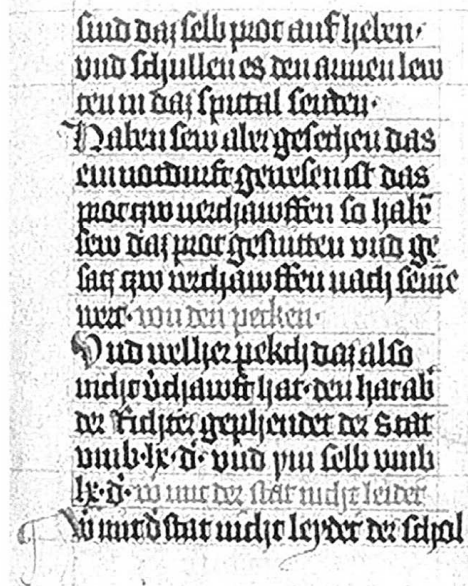 sind daz selb prot auf heben·
vnd schullen es den armen lew
ten in daz spittal senden·
Haben sew aber gesechen das
ein notdurft gewesen ist das
prot czw verchawffen so habē
sew daz prot gesnitten vnd ge
sacz czw verchawffen nach seinē
wert· von den pecken·
Vnd welher pekch daz also
nicht v̄chawft hat· den hat ab̄
der Richter gephendet der Stat
vmb· lx· d̄· vnd ym selb vmb
lx· d̄· wo mit der stat nicht leidet
Wo mit d̄ stat nicht leydet der schol